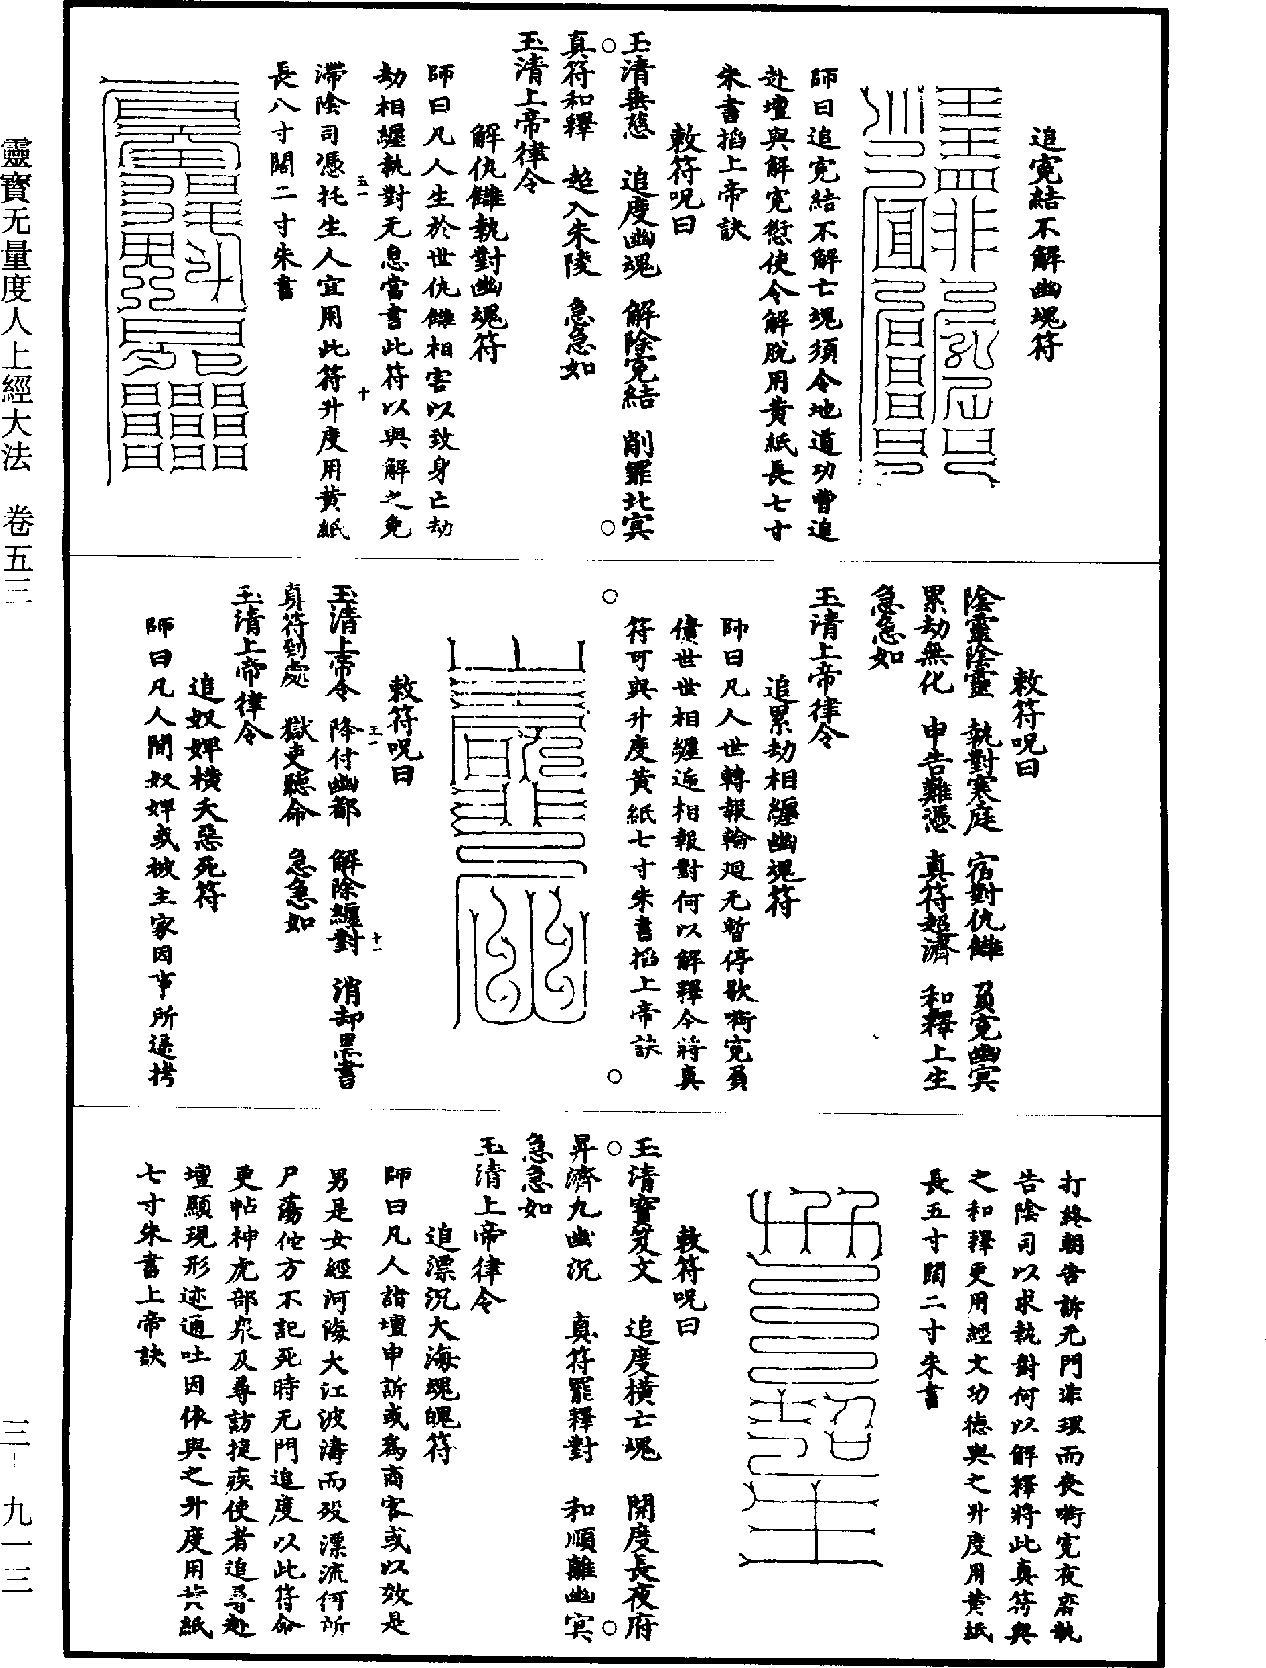 追寃結不解幽魂符
師曰追寃結不解亡魂須令地道功曹追
赴壇與解寃愆使令解脫用黃紙長七寸
朱書掐上帝訣
敕符呪曰
玉清垂慈　追度幽魂　解除寃結　削罪北冥
真符和釋　超入朱陵　急急如
玉清上帝律令
解仇讎執對幽魂符
師曰凡人生於世仇讎相害以致身亡劫
劫相纏執對无息當書此符以與解之免
滯陰司憑托生人宜用此符升度用黃紙
長八寸闊二寸朱書
敕符呪曰
陰靈陰靈　執對寒庭　宿對仇讎　負寃幽冥
累劫無化　申告難憑　真符超濟　和釋上生
急急如
玉清上帝律令
追累劫相纏幽魂符
師曰凡人世轉報輪廻无暫停歇銜寃負
債世世相纏遞相報對何以解釋今將真
符可與升度黃紙七寸朱書掐上帝訣
敕符呪曰
玉清上帝令　降付幽都　解除纏對　消却黑書
真符到處　獄吏聽命　急急如
玉清上帝律令
追奴婢橫夭惡死符
師曰凡人間奴婢或被主家因事所逼拷
打終朝告訴无門非理而喪銜寃夜窋執
告陰司以求執對何以解釋將此真符與
之和釋更用經文功德與之升度用黃紙
長五寸闊二寸朱書
敕符呪曰
玉清寶笈文　追度橫亡魂　開度長夜府
昇濟九幽沉　真符罷釋對　和順離幽冥
急急如
玉清上帝律令
追漂沉大海魂魄符
師曰凡人詣壇申訴或為商客或以效是
男是女經河海大江波濤而歿漂流何所
尸蕩他方不記死時无門追度以此符命
更帖神虎部衆及尋訪捷疾使者追尋赴
壇顯現形迹通吐因依與之升度用黃紙
七寸朱書上帝訣
靈寶无量度人上經大法　卷五三
三－九一三